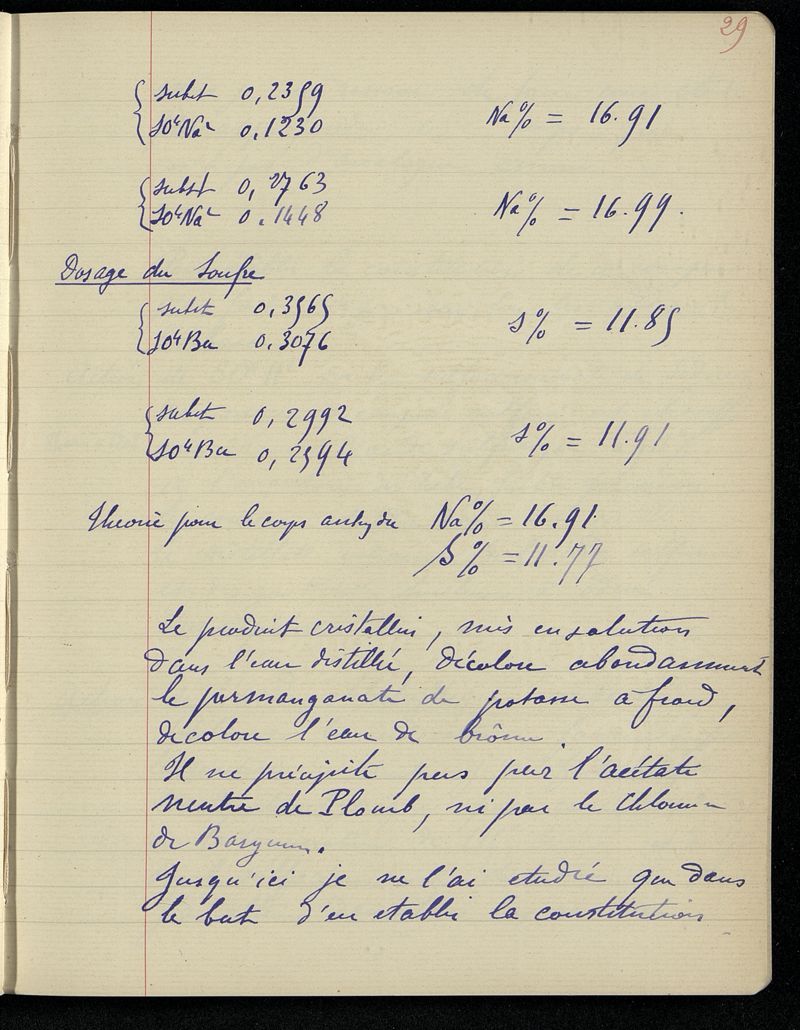 29
subst 0,2359
SO⁴Na² 0,1230 Na% = 16.91
subst 0,2763
SO⁴Na² 0.1448 Na% = 16.99.
Dosage du Soufre
subst 0,3565
SO⁴Ba 0.3076 S% = 11.85
subst 0,2992
SO⁴Ba 0,2594 S% = 11.91
Théorie pour le corps anhydre Na% = 16.91
S% = 11.77
Le produit cristallin, mis en solution
dans l'eau distillée, décolore abondamment
le permanganate de potasse a froid,
decolore l'eau de brôme.
Il ne précipite pas par l'acétate
neutre de Plomb, ni par le Chlorure
de Baryum.
Jusqu'ici je ne l'ai etudié que dans
le but d'en etablir la constitution